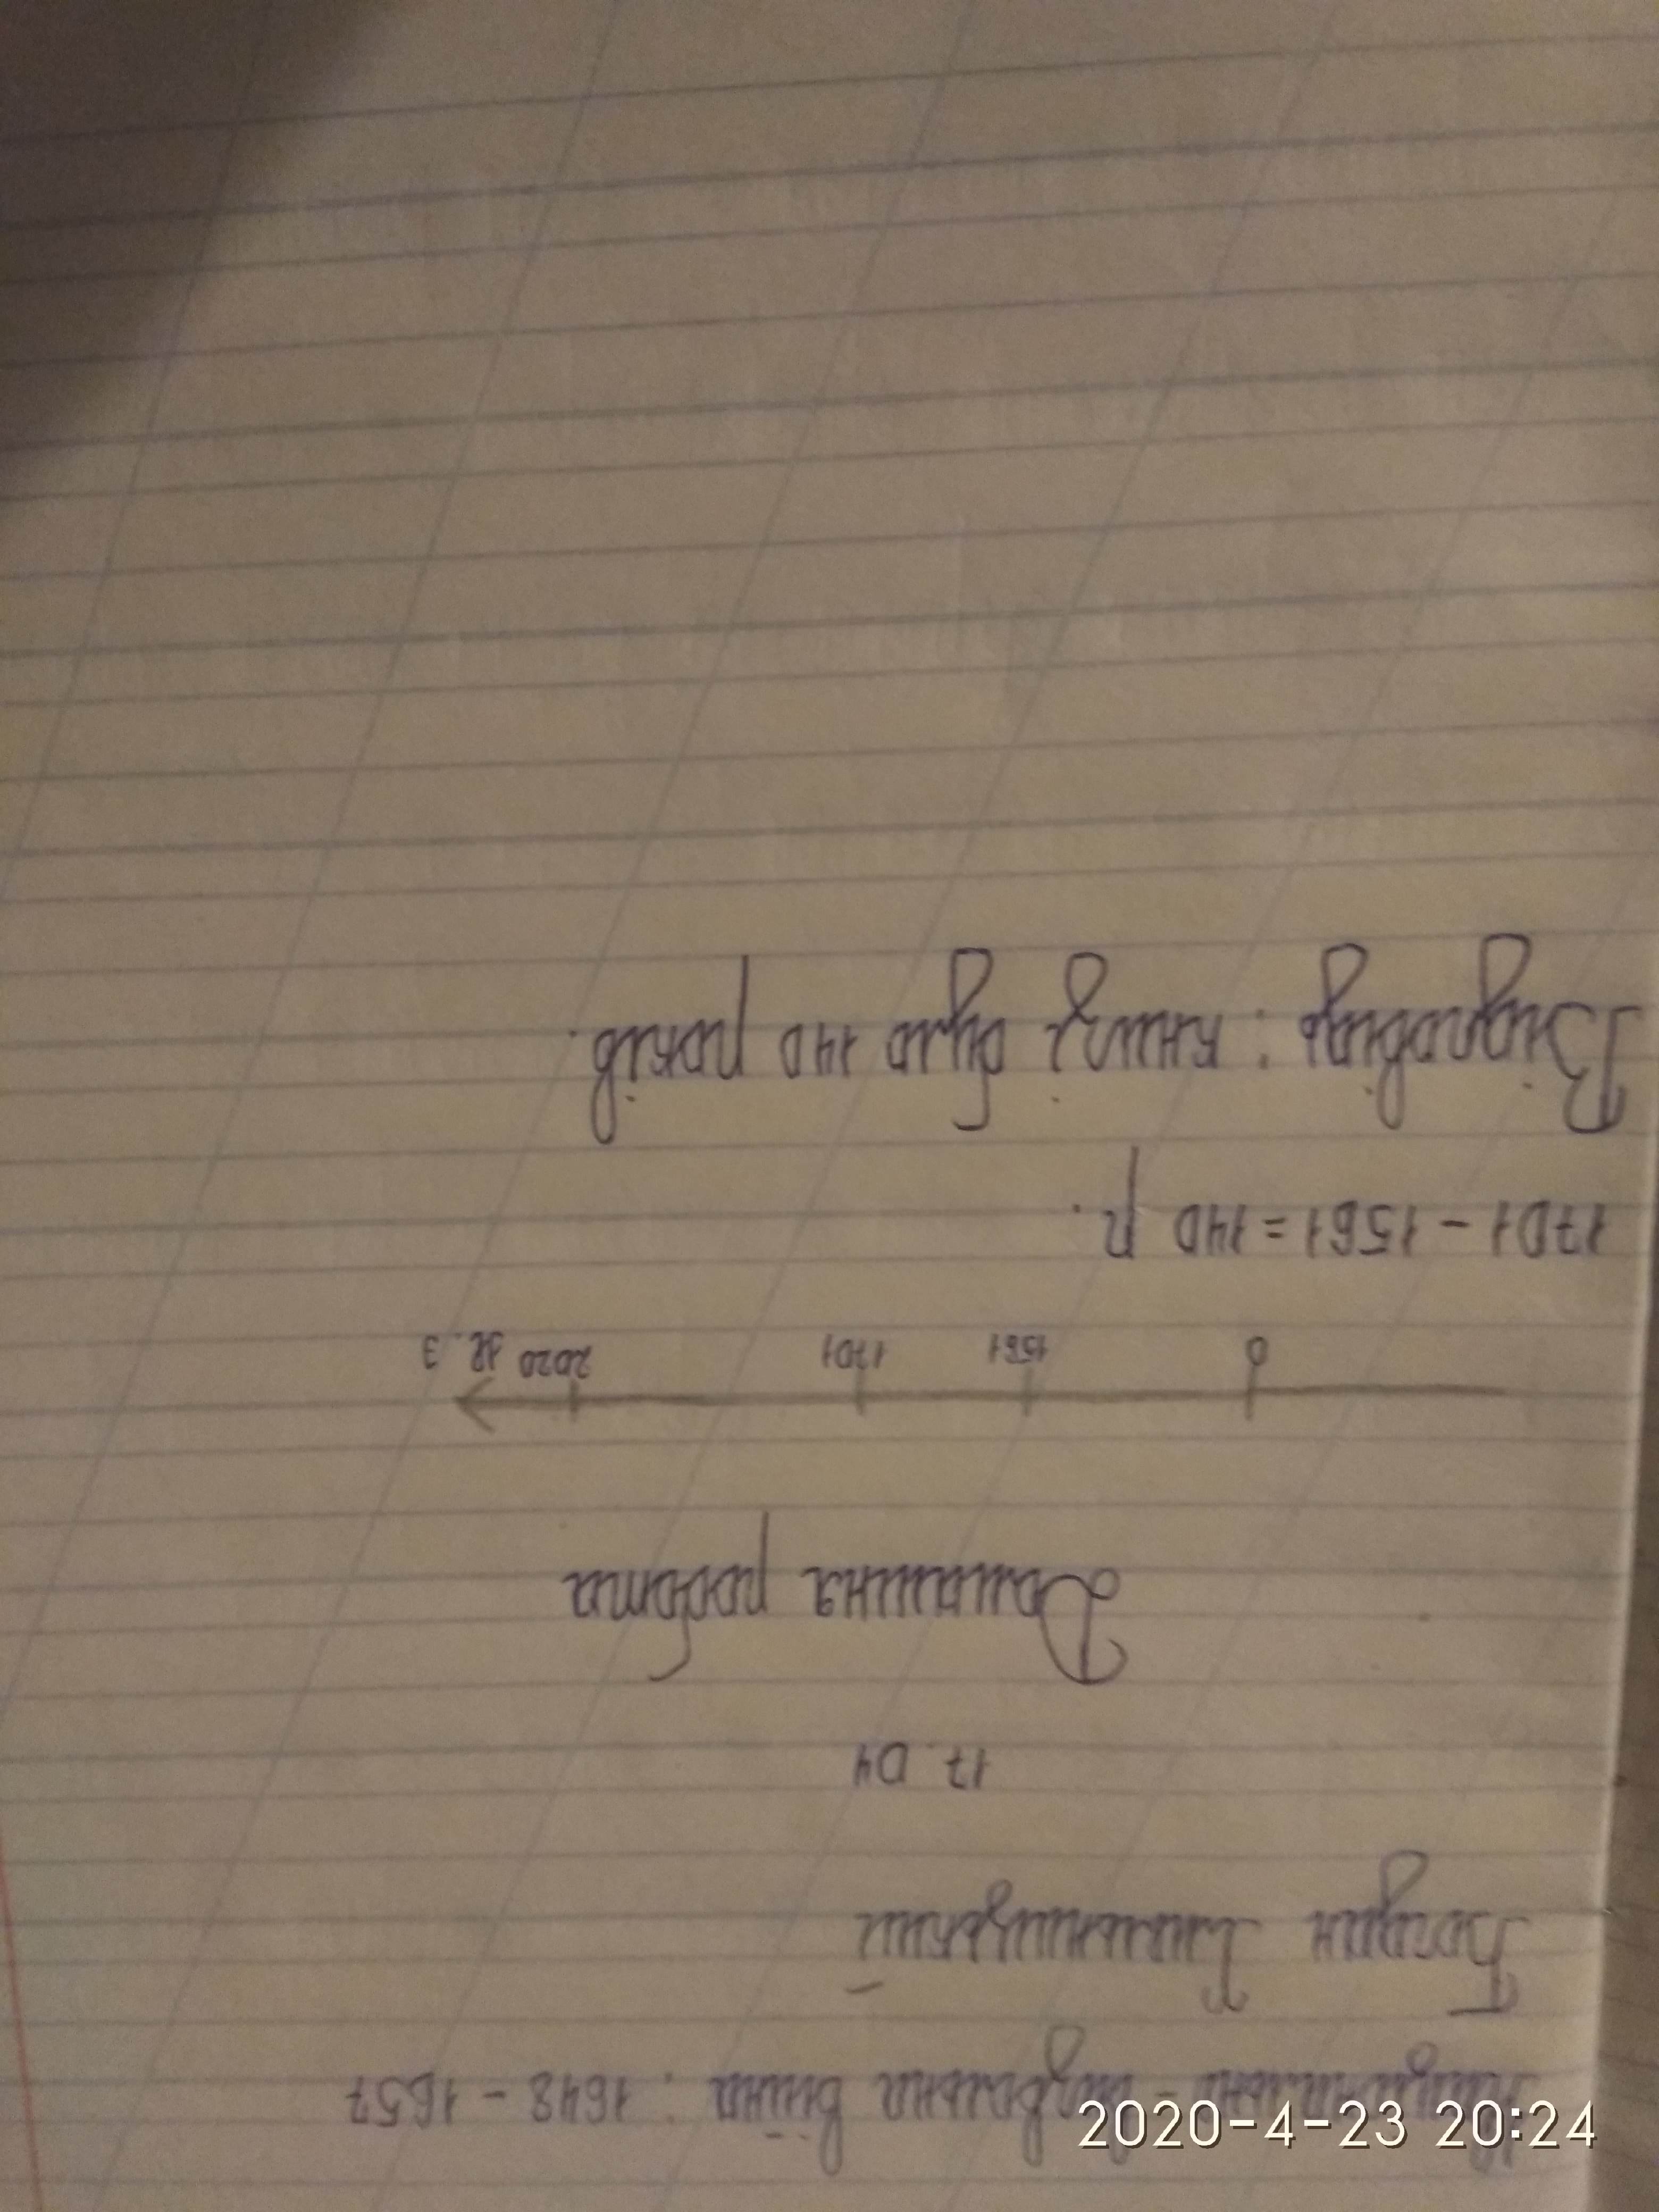 Національно-визвольна війна : 1648 - 1657
Богдан Хмельницький
17. 04
Домашня робота
0 1561 1701 2020 р. н. е
1701 - 1561 = 140 р.
Відповідь : книзі було 140 років.
2020-4-23 20:24